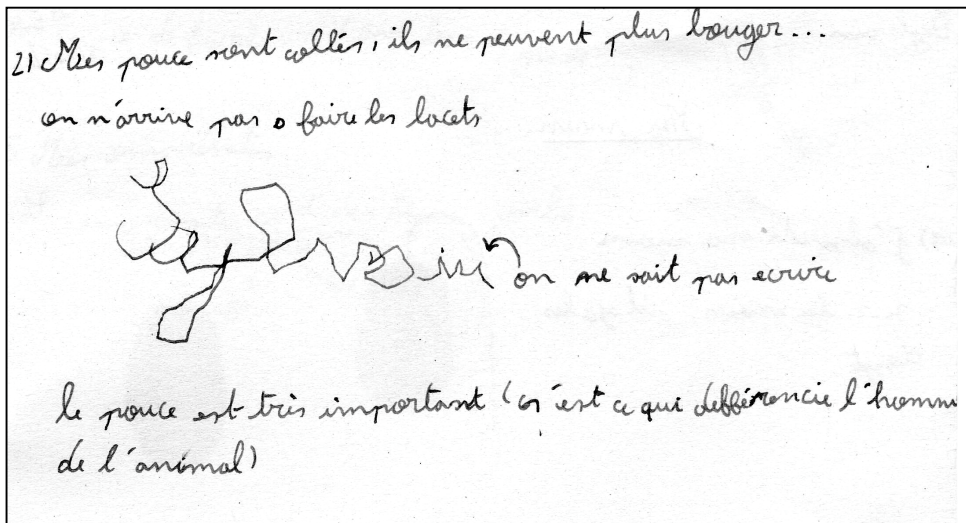 2) Mes pouce sont collés, ils ne peuvent plus bouger...
on n'arrive pas a faire les lacets
on ne sait pas ecrire
le pouce est très important (c'est ce qui defférencie l'homme
de l'animal)